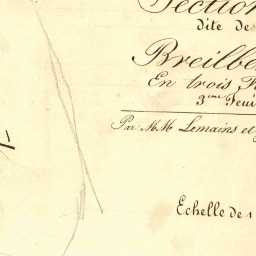 Section
dite de
Breilbe
En trois F
3me Feui
Par M.M Lemains et
Echelle de 1